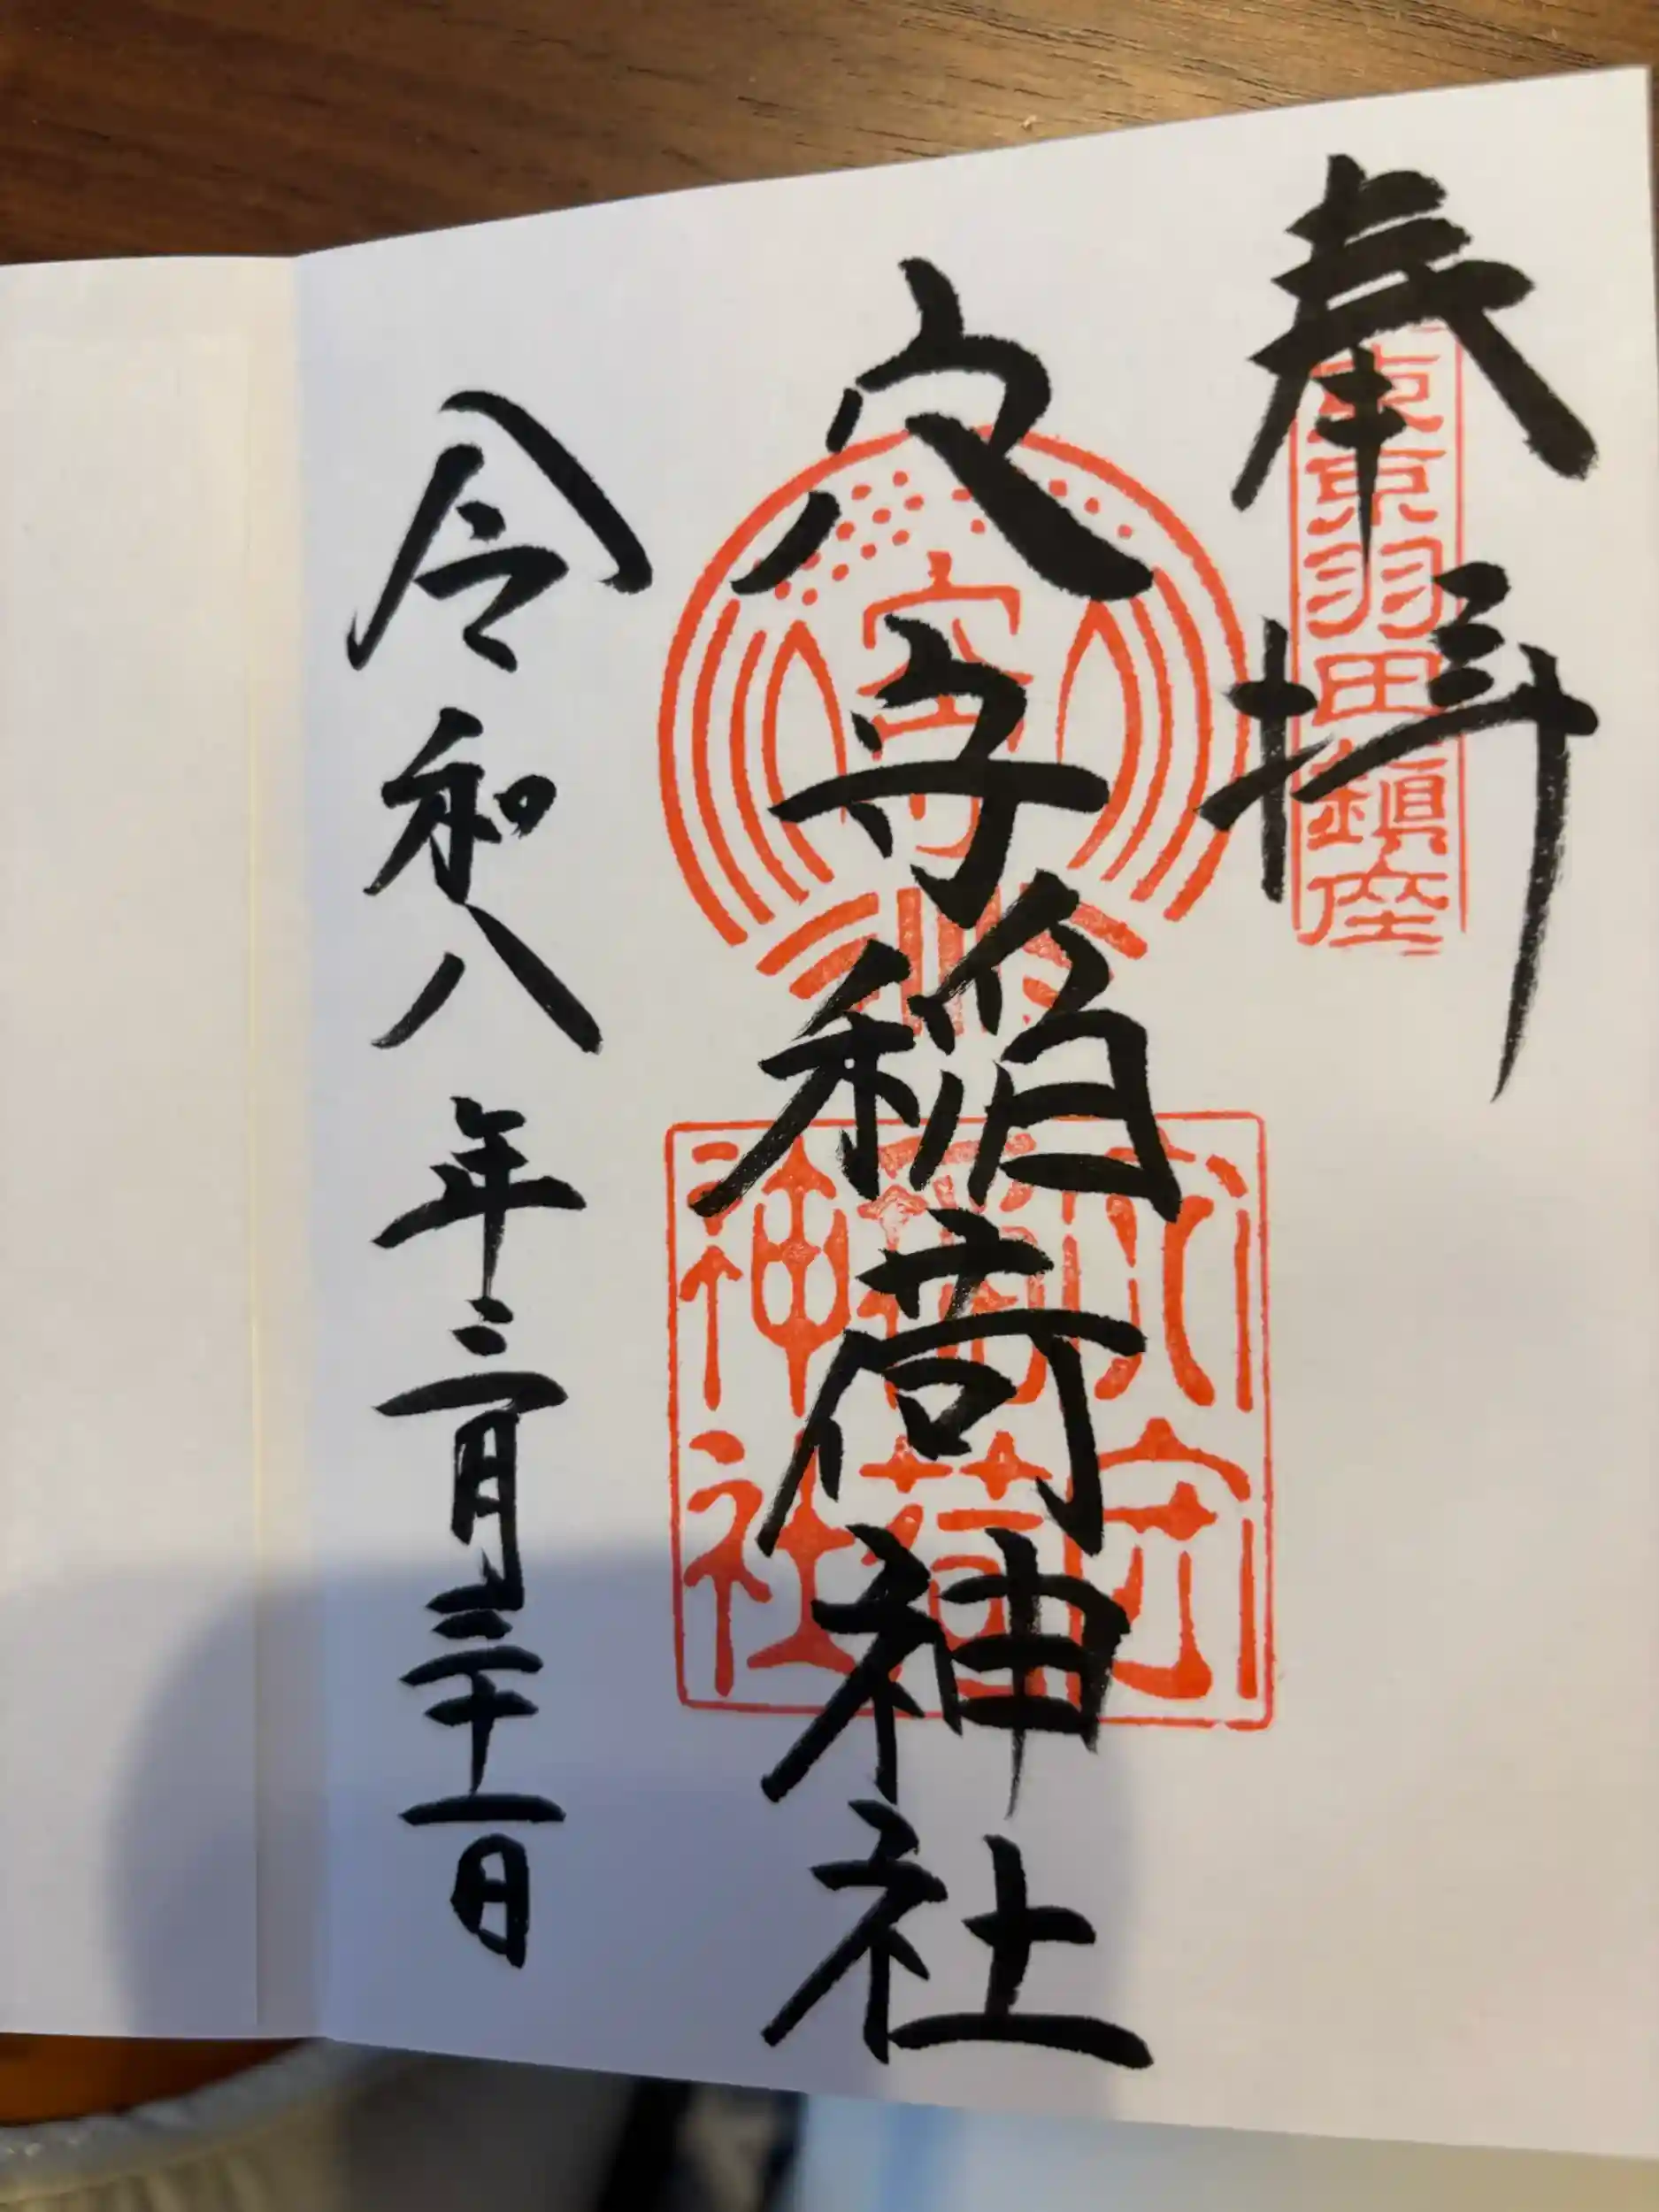 奉拝
東京羽田鎮座
穴守稲荷神社
穴守
穴守
稲荷
神社
令和八年三月三十一日